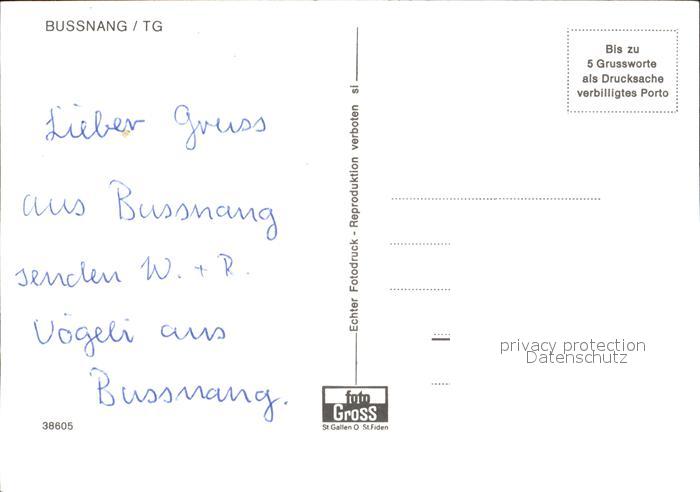 BUSSNANG / TG
Bis zu
5 Grussworte
als Drucksache
verbilligtes Porto
Lieber Gruss
aus Bussnang
senden W. + R.
Vögeli aus
Bussnang.
38605
Echter Fotodruck - Reproduktion verboten si
foto
GROSS
St.Gallen O St.Fiden
privacy protection
Datenschutz